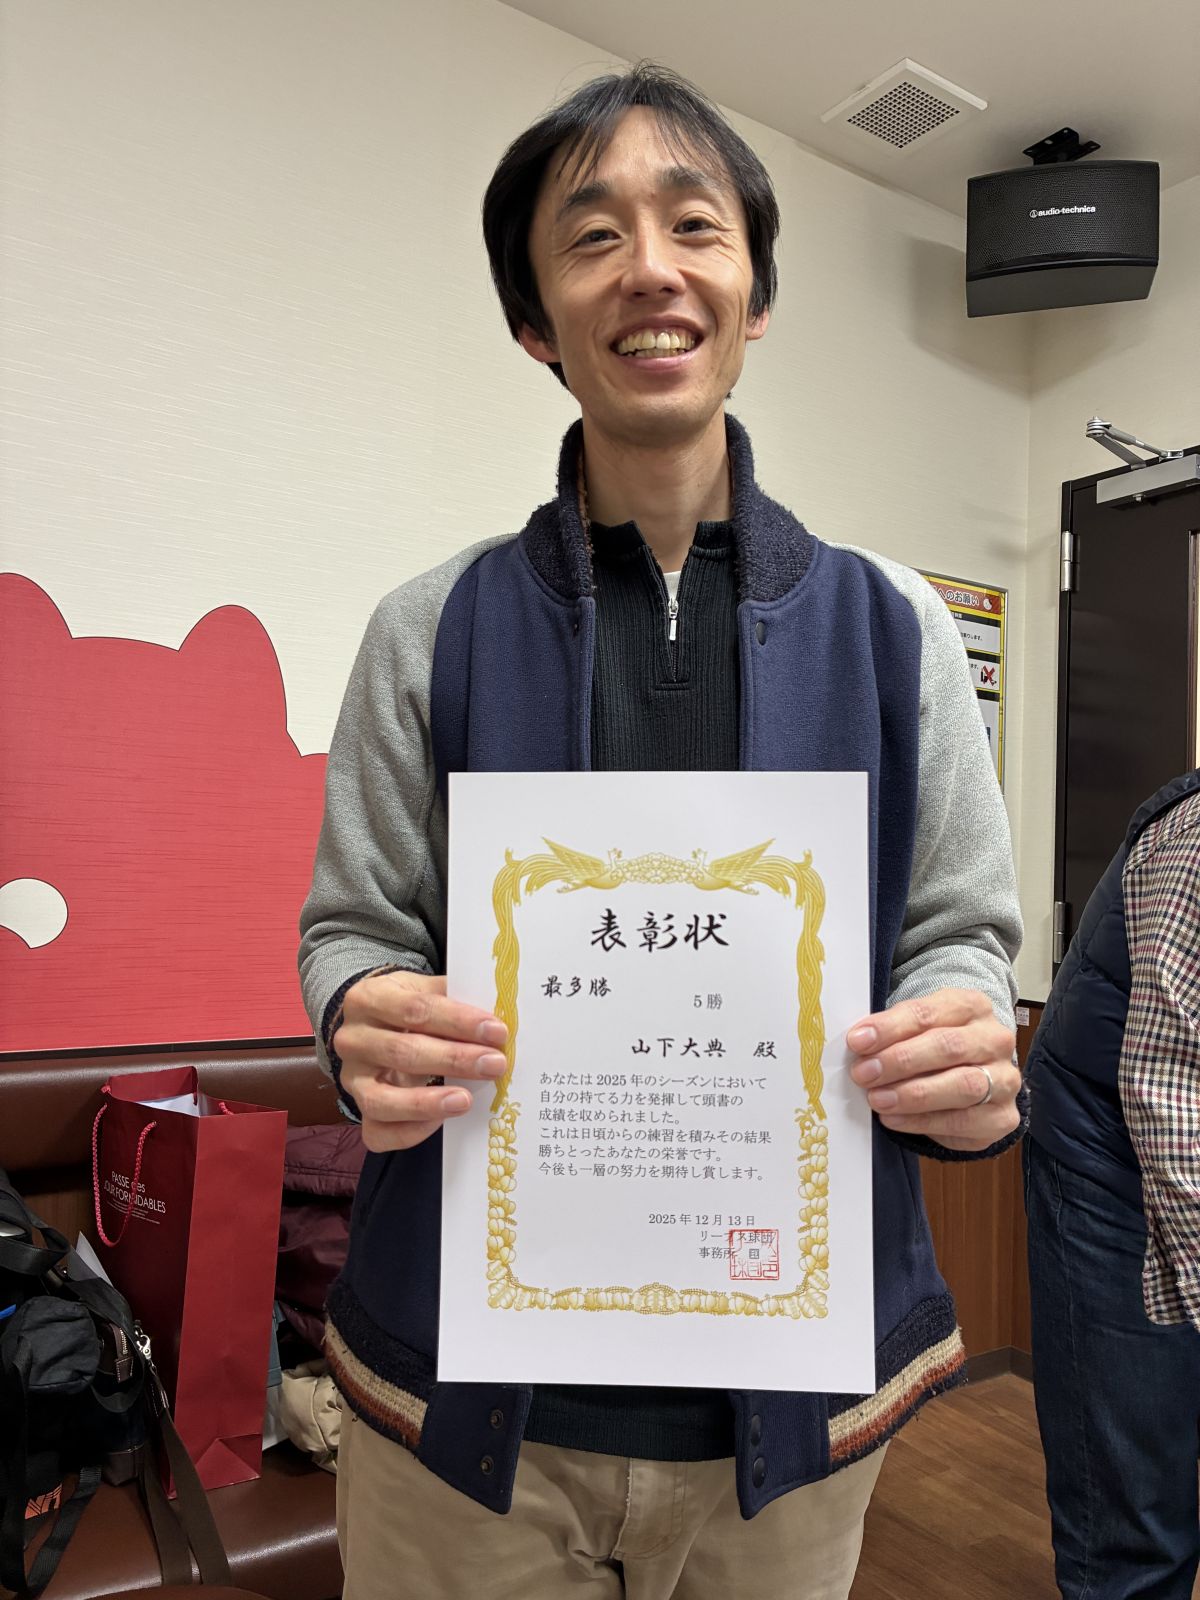 audio-technica
へのお願い
表彰状
最多勝
5勝
山下大典 殿
あなたは2025年のシーズンにおいて
自分の持てる力を発揮して頭書の
成績を収められました。
これは日頃からの練習を積みその結果
勝ちとったあなたの栄誉です。
今後も一層の努力を期待し賞します。
2025年12月13日
リーブス球団
事務所
PASSE des
JOUR FORMIDABLES